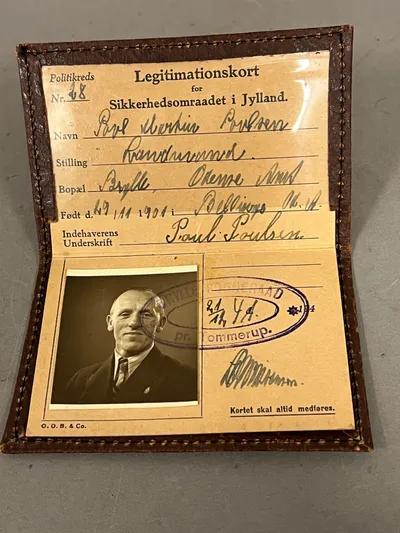 Politikreds
Nr. 28
Legitimationskort
for
Sikkerhedsomraadet i Jylland.
Navn Povl Martin Povlsen
Stilling Landmand.
Bopæl Brylle, Odense Amt
Født d. 29/11 1901
Indehaverens
Underskrift Paul Paulsen
pr. Tommerup.
21/12 41.
Kortet skal altid medføres.
O. O. B. & Co.